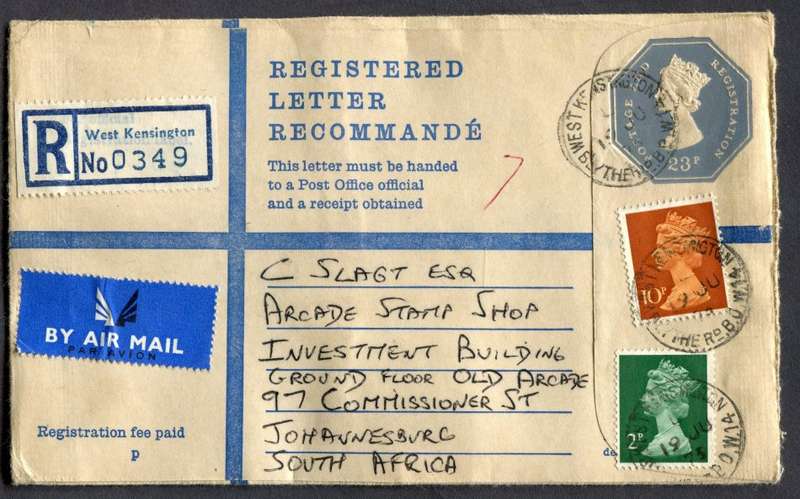 REGISTERED
LETTER
RECOMMANDÉ
This letter must be handed
to a Post Office official
and a receipt obtained
R
West Kensington
No 0349
POSTAGE AND REGISTRATION
23P
WEST KENSINGTON
10P
2P
19 JU
BY AIR MAIL
PAR AVION
C SLAGT ESQ
ARCADE STAMP SHOP
INVESTMENT BUILDING
GROUND FLOOR OLD ARCADE
97 COMMISSIONER ST
JOHANNESBURG
SOUTH AFRICA
Registration fee paid
p